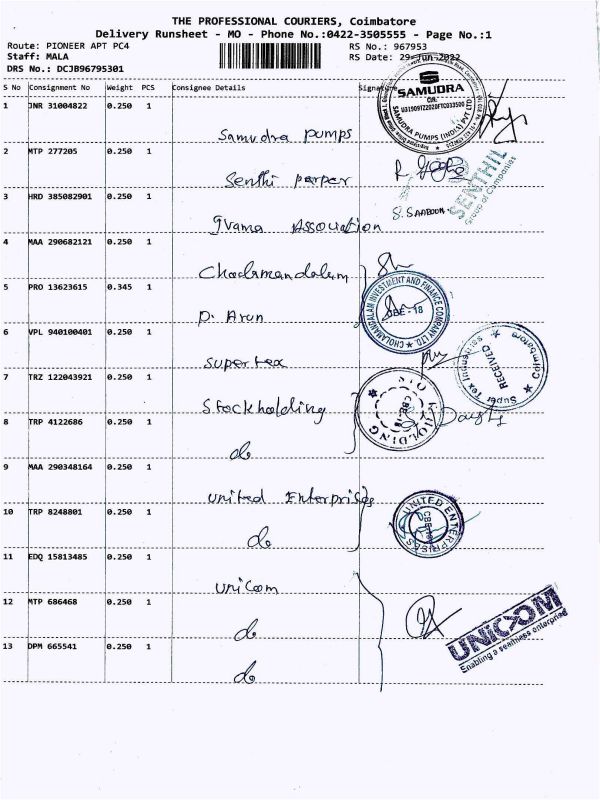 THE PROFESSIONAL COURIERS, Coimbatore
Delivery Runsheet - MO - Phone No.:0422-3505555 - Page No.:1
Route: PIONEER APT PC4 RS No.: 967953
Staff: MALA RS Date: 29-Jun-2022
DRS No.: DCJB96795301
S No Consignment No Weight PCS Consignee Details Signature
1 JNR 31004822 0.250 1
Samudra pumps
SAMUDRA
CIN:
U31909TZ2020FTC033500
SAMUDRA PUMPS (INDIA) PVT LTD
2 MTP 277205 0.250 1
Senthi parper
SENTHIL
Group of Companies
3 HRD 385082901 0.250 1
gvama Association
S. SAABOON
4 MAA 290682121 0.250 1
Cholamandalum
5 PRO 13623615 0.345 1
P. Arun
CHOLAMANDALAM INVESTMENT AND FINANCE COMPANY LTD.
CBE - 18
6 VPL 940100401 0.250 1
Supertex
Super Tex Industries
RECEIVED
Coimbatore
7 TRZ 122043921 0.250 1
Stockholding
STOCKHOLDING
CBE-18
8 TRP 4122686 0.250 1
do
9 MAA 290348164 0.250 1
united Enterprises
10 TRP 8248801 0.250 1
do
UNITED ENTERPRISES
CBE-18
11 EDQ 15813485 0.250 1
unicom
12 MTP 686468 0.250 1
do
UNICOM
Enabling a seamless enterprise
13 DPM 665541 0.250 1
do